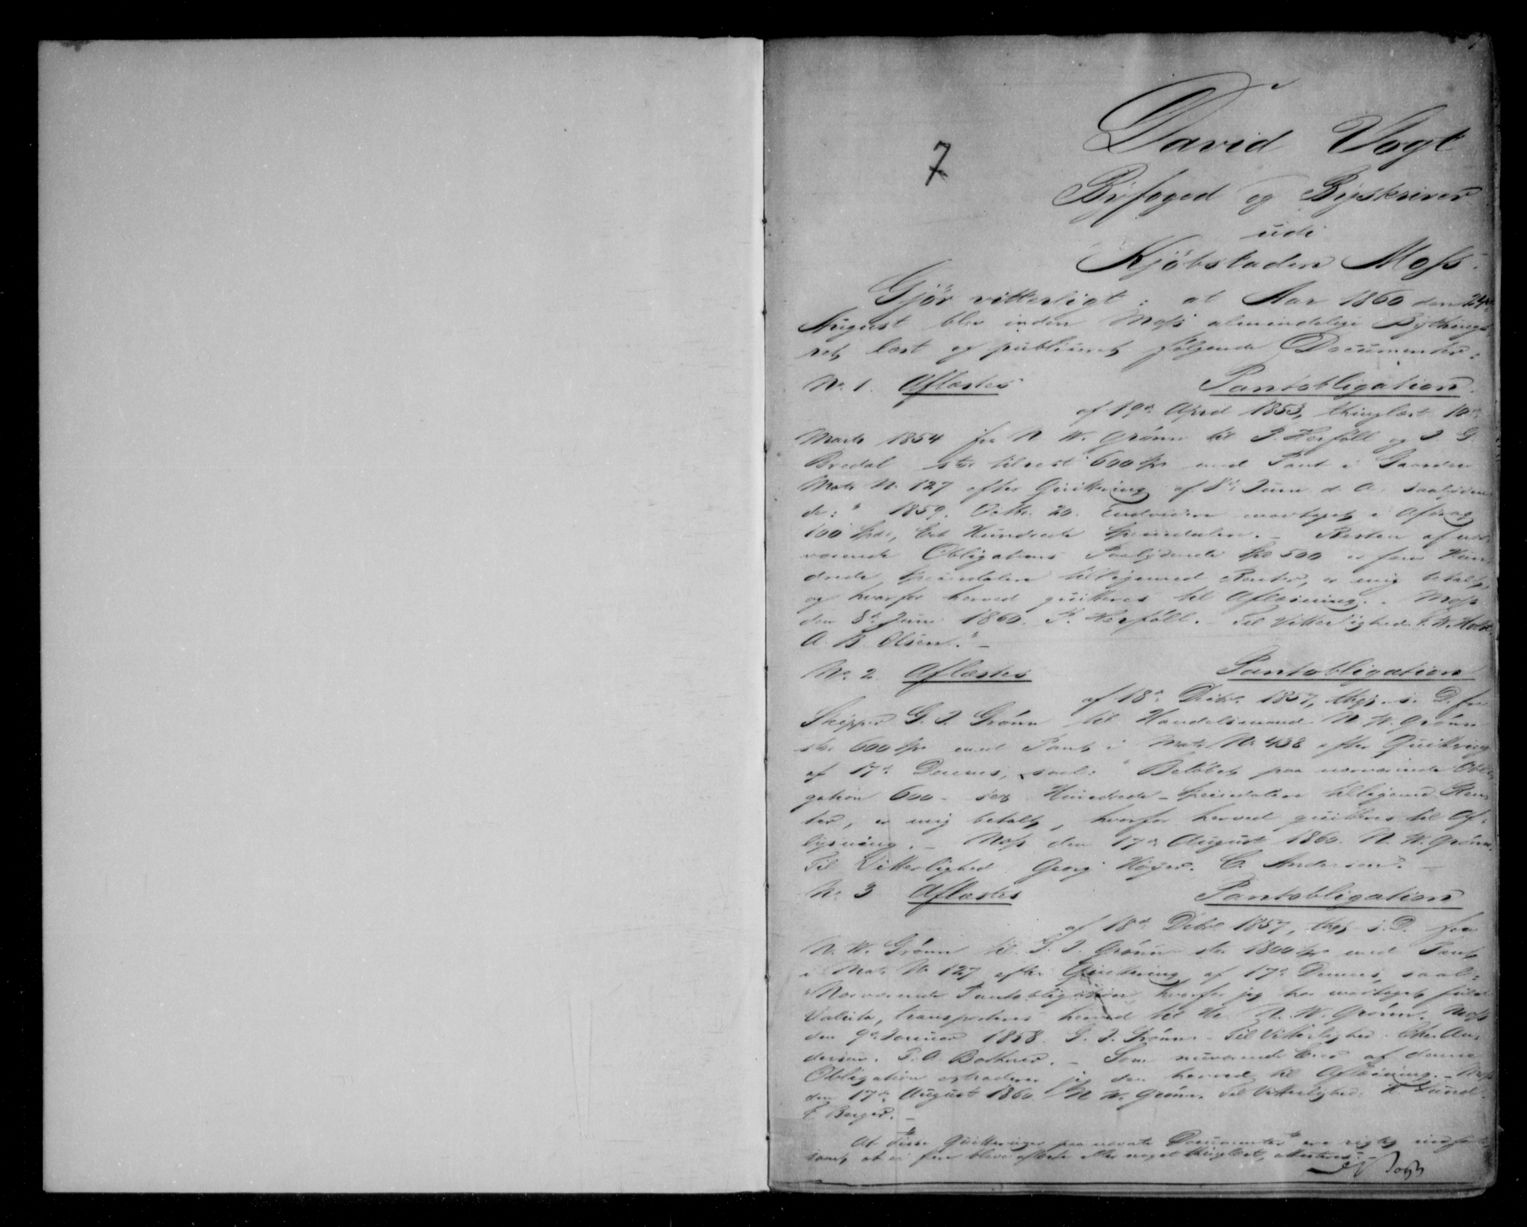 7
David Vogt
Byfoged og Byskriver
udi
Kjöbstaden Moss.
Gjör vitterligt: at Aar 1860 den 24de
August blev inden Moss almindelige Bythings
ret læst og publiceret følgende Documenter:
No 1 Aflæstes Pantobligation
af 19de April 1853, thinglæst 10de
Marts 1854 fra N. W. Grönn til P. Herföll og J. G.
Bredal stor tilrest 600 Spd med Pant i Gaarden
Matr. No 127 efter Qvittering af 8de Juni d. A. saalyden
de: " 1859. Octbr. 20. Endvidere modtaget i Afdrag
100 Spd, Et Hundrede Speciedaler. - Resten af nær
værende Obligations Paalydende Spd 500 er fem Hun
drede Speciedaler tilligemed Renter, er mig betalt
og hvorfor herved qvitteres til Aflæsning. - Moss
den 8de Juni 1860. P. Herföll. - Til Vitterlighed: W. Holst
A. B. Olsen." -
No 2 Aflæstes Pantobligation
af 18de Decbr. 1857, thgl. s. D. fra
Skipper G. J. Grönn til Handelsmand N. W. Grönn
stor 600 Spd med Pant i Matr. No 438 efter Qvittering
af 17de Dennes, saal: " Beløbet paa nærværende Obli
gation 600 - sex Hundrede - Speciedaler tilligemed Ren
ter, er mig betalt, hvorfor herved qvitteres til Af-
lysning. - Moss den 17de August 1860. N. W. Grönn.
Til Vitterlighed Georg Høyer. C. Andersen". -
No 3 Aflæstes Pantobligation
af 18de Decbr. 1857, thgl. s. D. fra
N. W. Grönn til G. J. Grönn stor 1800 Spd med Pant
i Matr. No 127 efter Qvittering af 17de Dennes, saal:
Nærværende Pantobligation, hvorfor jeg har modtaget fuld
Valuta, transporteres herved til Hr. N. W. Grönn. Moss
den 9de Januar 1858. G. J. Grönn - Til Vitterlighed: Chr. An-
dersen. P. A. Bothner. - Som nuværende Eier af denne
Obligation extraderer jeg den herved til Aflæsning. - Moss
den 17de August 1860. N. W. Grönn. Til Vitterlighed: Lund.
F. Berger. -
At disse Qvitteringer paa Documenter ere rigtig indført
samt at ei før blevet aflæst eller noget thinglæst, attesteres.
Vogt